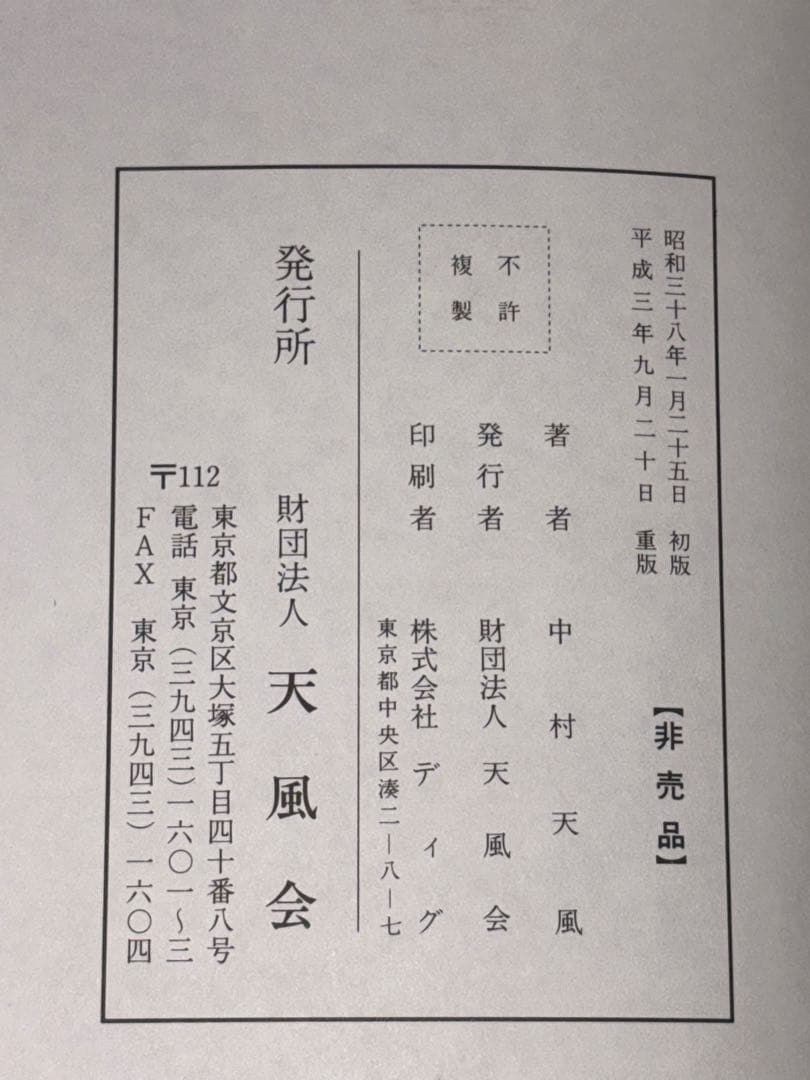 昭和三十八年一月二十五日 初版
平成三年九月二十日 重版
【非売品】
不許
複製
著者 中村天風
発行者 財団法人 天風会
印刷者 株式会社ディグ
東京都中央区湊二―八―七
発行所 財団法人 天風会
〒112
東京都文京区大塚五丁目四十番八号
電話 東京（三九四三）一六〇一～三
FAX 東京（三九四三）一六〇四